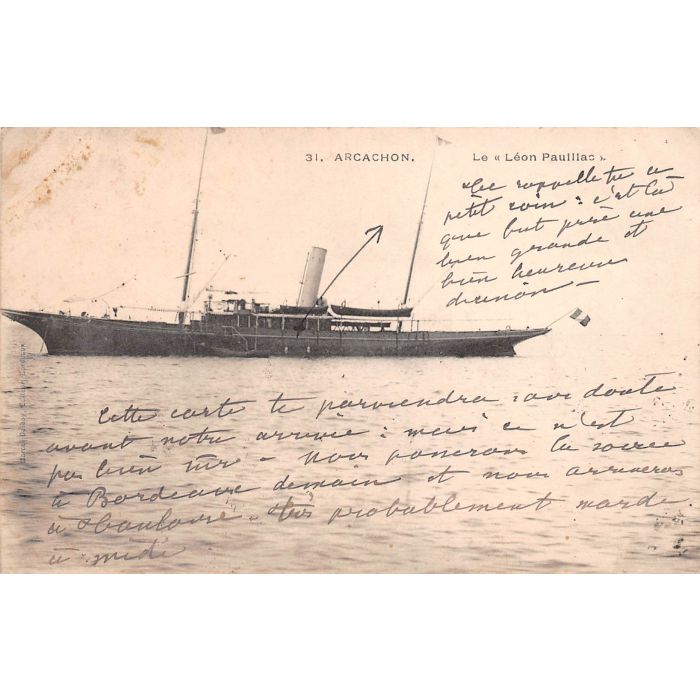 31. ARCACHON. Le « Léon Pauillac ».
Te rappelle tu ce
petit coin : c'est là
que fut prise une
bien grande et
bien heureuse
décision —
Cette carte te parviendra sans doute
avant notre arrivée : mais ce n'est
pas bien sûr — Nous passerons la soirée
à Bordeaux demain et nous arriverons
à Toulouse très probablement mardi
à midi